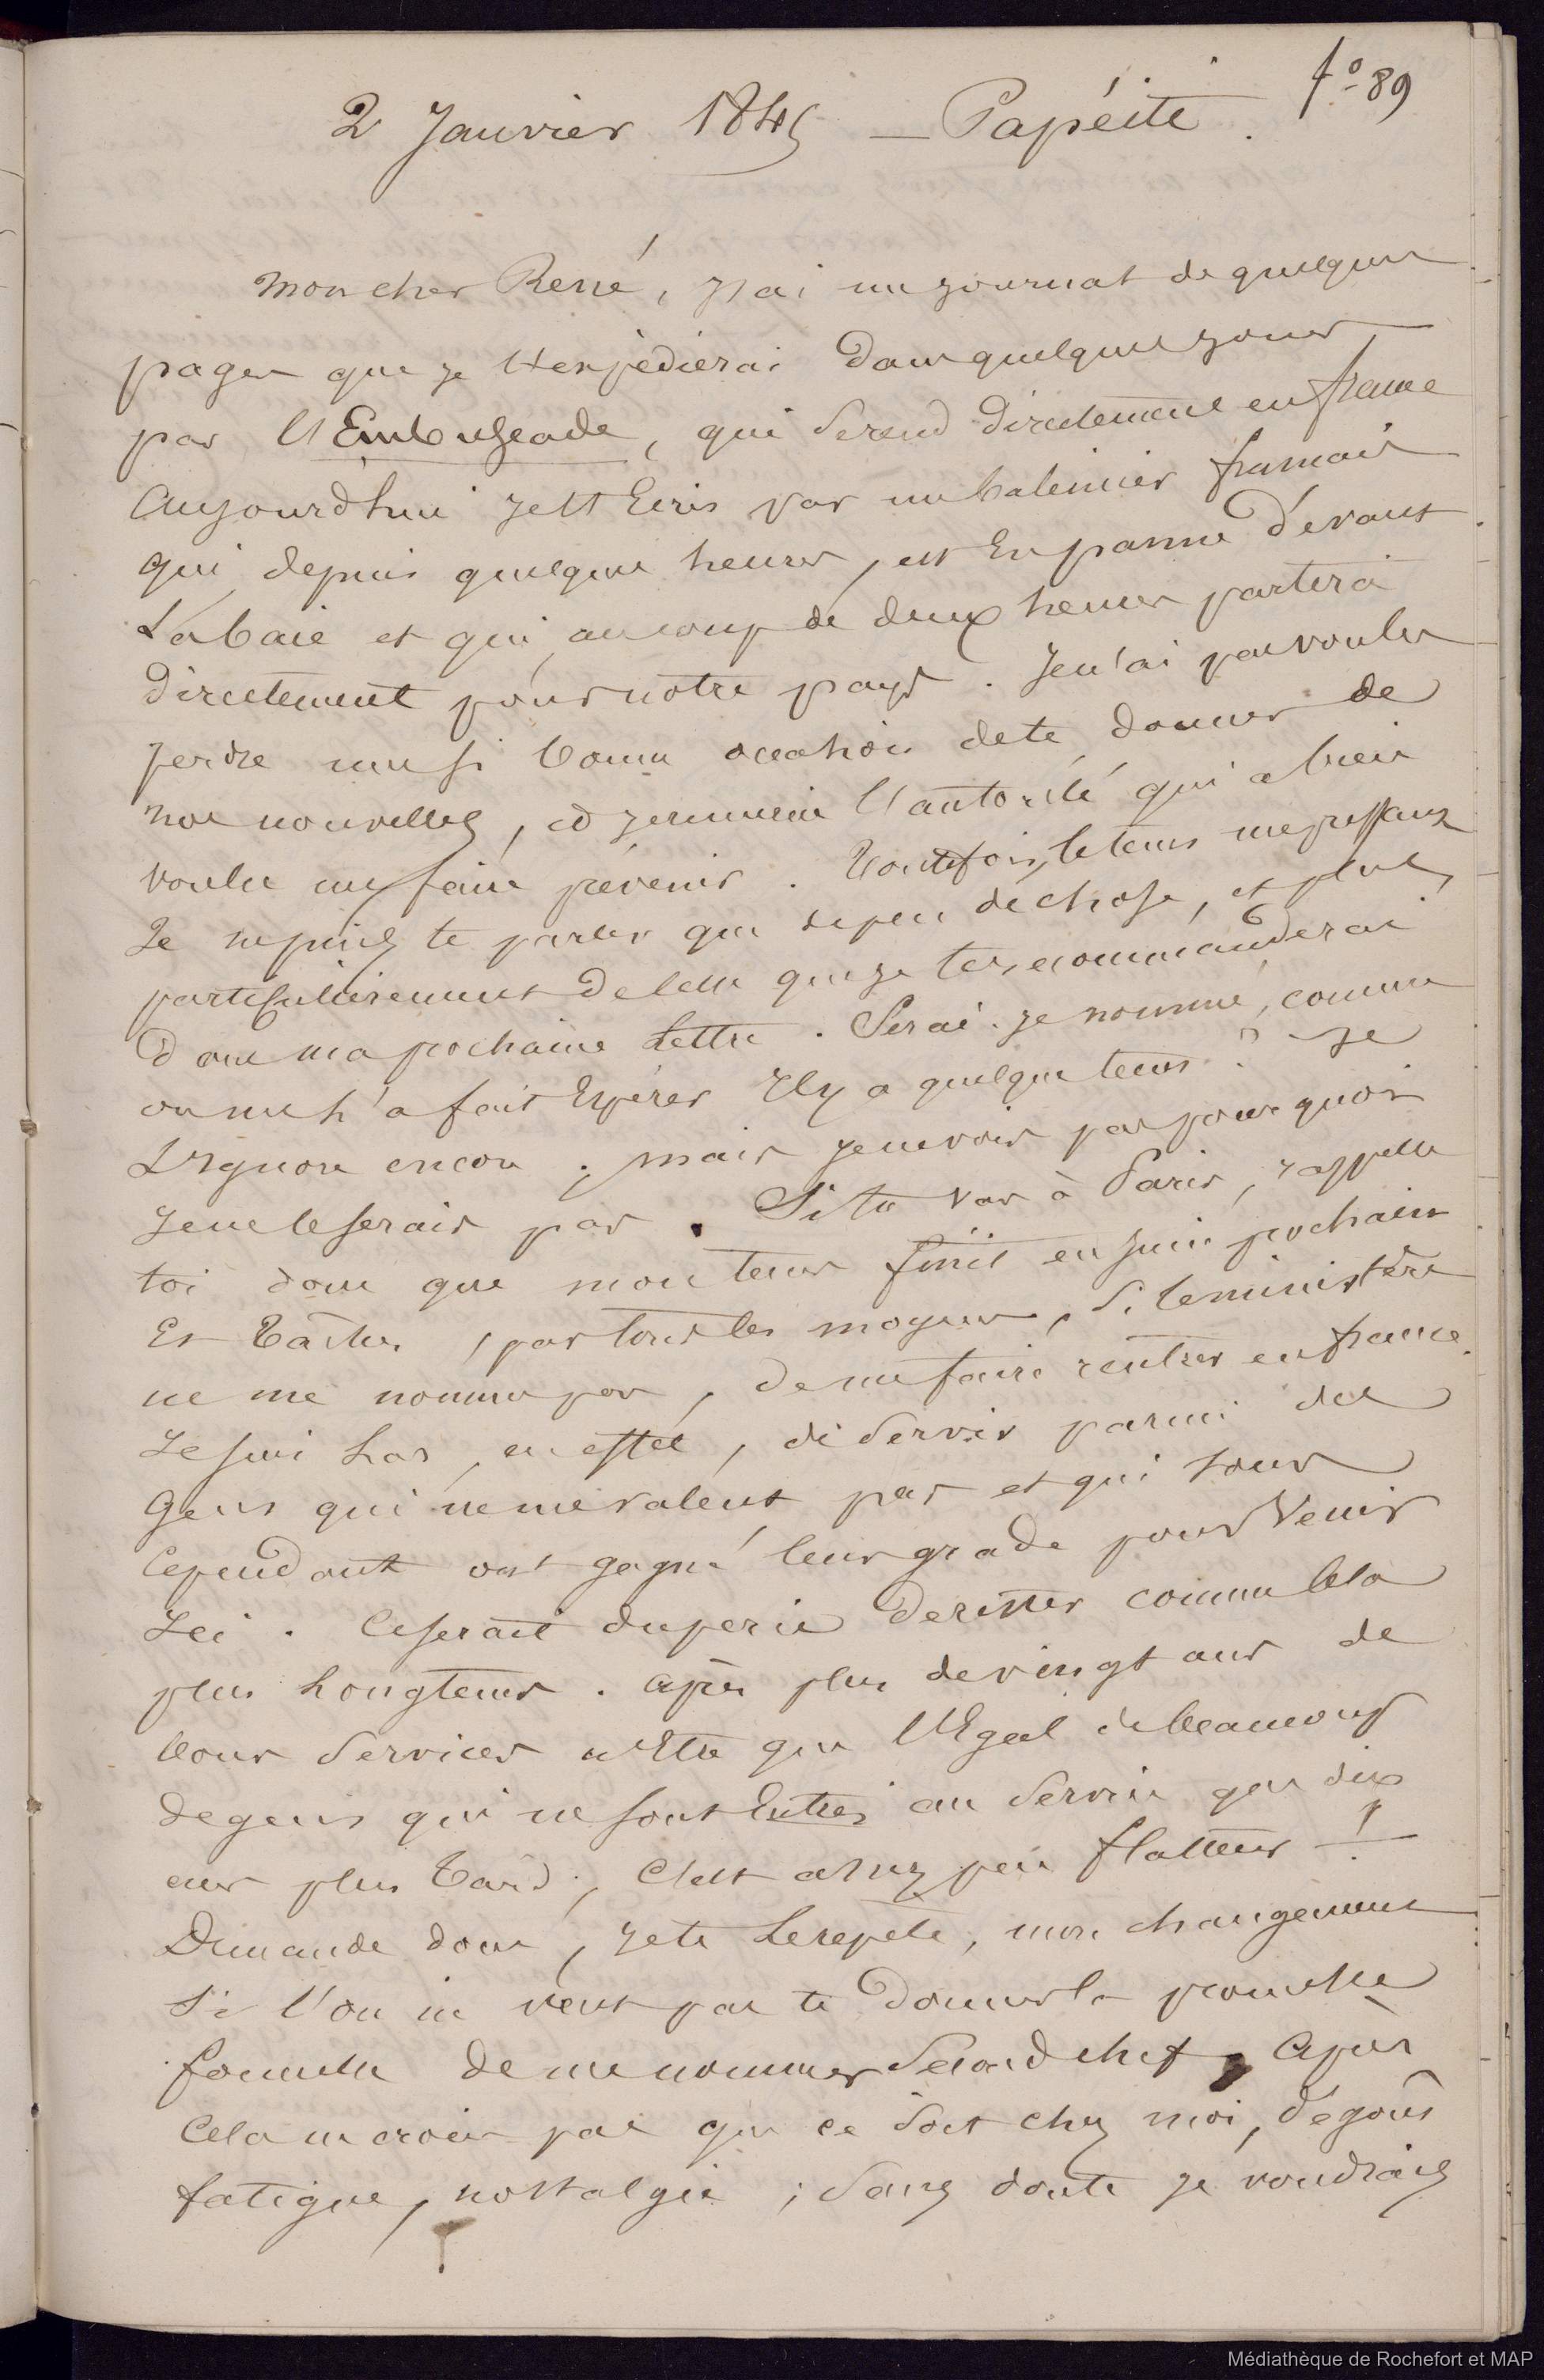 fo 89
2 Janvier 1845 — Papéïte.
Mon cher René, j'ai un journal de quelques
pages que je t'expédierai dans quelques jours,
par l'Embuscade, qui se rend directement en france
Aujourd'hui je t'Ecris par un baleinier français
qui, depuis quelques heures, est En panne dévant
La baie et qui, au coup de deux heures partira
Directement pour notre pays. Je n'ai pas voulu
perdre une si bonne occasion de te donner de
nos nouvelles, et je remercie l'autorité qui a bien
voulu me faire prévenir. Toutefois, le tems me pressant
Je ne puis te parler que de peu de chose, et plus
particulièrement de celle que je te recommanderai
Dans ma prochaine Lettre. Serai-je nommé, comme
on me l'a fait Espérer Il y a quelque tems ? Je
L'Ignore encore ; mais je ne vois pas pourquoi
Je ne le serais pas. Si tu vas à Paris, rappelle
toi donc que mon tems finit en juin prochain
Et tâche, par tous les moyens, Si le ministère
ne me nomme pas, de me faire rentrer en france.
Je suis Las, en effet, de Servir parmi des
Gens qui ne me valent pas et qui tous
Cependant ont gagné leur grade pour Venir
Ici. Ce serait duperie de rester comme cela
plus Longtems. Après plus de vingt ans de
bons Services n'Etre que l'Egal de beaucoup
de gens qui ne sont Entrés au Service que dix
ans plus tard ; C'est assez peu flatteur !
Demande donc, je te Le repète, mon changement
Si l'on ne veut pas te donner la promesse
formelle de me nommer Second chef, Après
Cela ne crois pas que ce Soit chez moi, dégoût
fatigue, nostalgie ; Sans doute je voudrais
Médiathèque de Rochefort et MAP